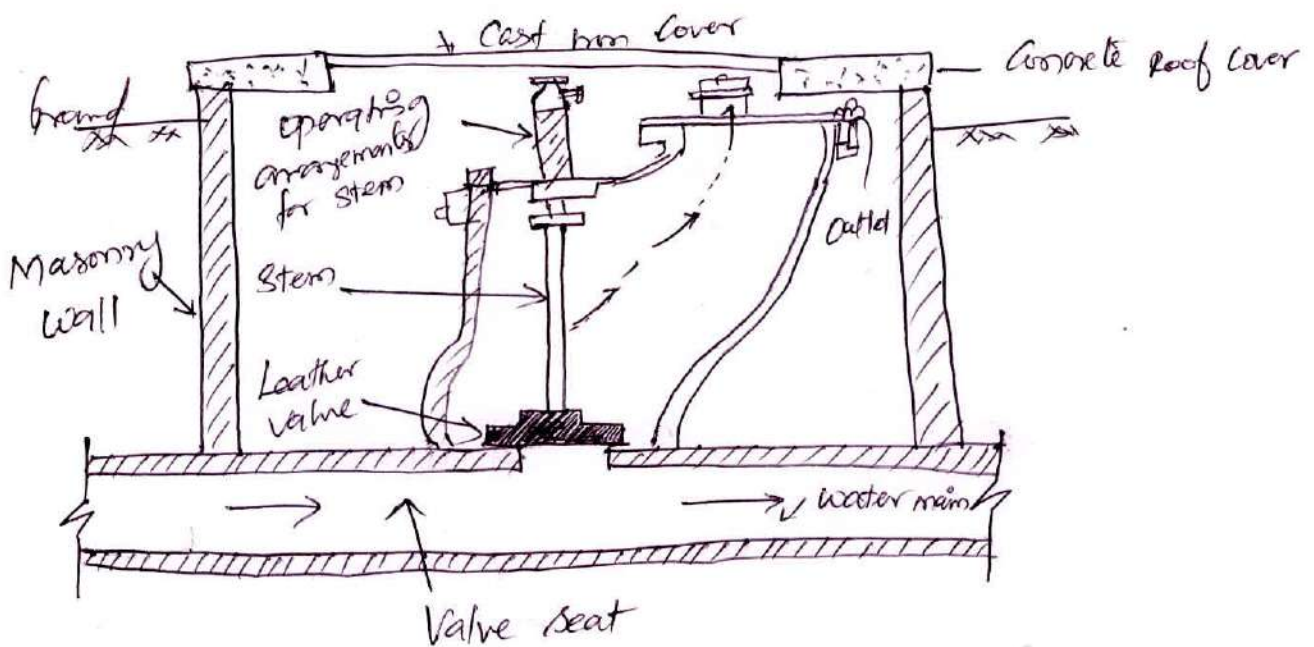 Cast iron cover
Concrete Roof cover
Ground
operating
arrangements
for stem
outlet
Masonry
wall
Stem
Leather
valve
water main
Valve seat